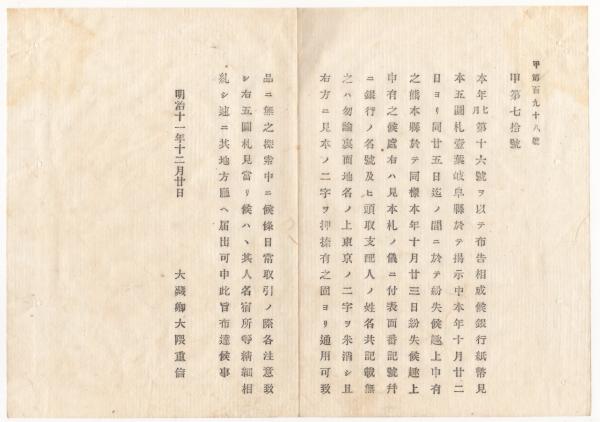 甲第百九十八號
甲第七拾號
本年七月第十六號ヲ以テ布告相成候銀行紙幣見
本五圓札壹葉岐阜縣於テ揭示中本年十月廿二
日ヨリ同廿五日迄ノ間ニ於テ紛失候趣上申有
之熊本縣於テ同樣本年十月廿三日紛失候趣上
申有之候處右ハ見本札ノ儀ニ付表面番記號幷
ニ銀行ノ名號及ヒ頭取支配人ノ姓名共記載無
之ハ勿論裏面地名ノ上東京ノ二字ヲ朱消シ且
右方ニ見本ノ二字ヲ押捺有之固ヨリ通用可致
品ニ無之探索中ニ候條日常取引ノ際各注意致
シ右五圓札見當リ候ハヽ其人名宿所等精細相
糺シ速ニ其地方廳ヘ届出可申此旨布達候事
明治十一年十二月廿日
大藏卿大隈重信